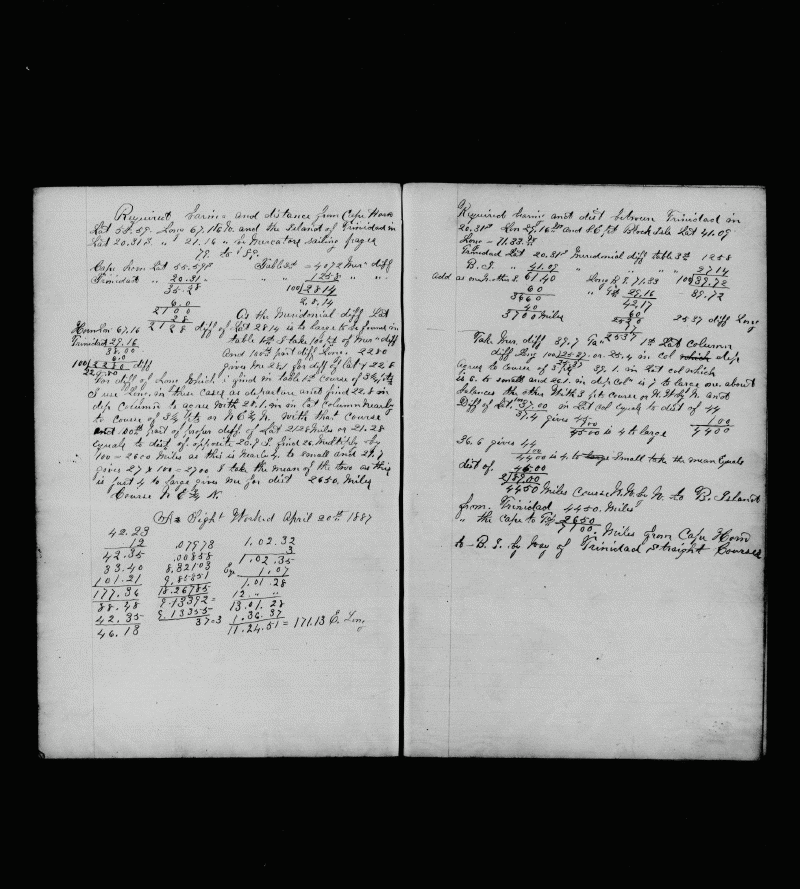 Required baring and distance from Cape Horn
Lat 55.59. Long 67.16 W. and the Island of Trinidad in
Lat 20.31 S. " 29.16 " in Mercators sailing pages
79. to 89.
Cape horn Lat 55.59 S Table 3d = 4072 Mer. diff
Trinidad " 20.31 " " 1258 " "
35.28 100)2814
60 28.14
2100
28 As the Meridional diff Lat
Horn Lon 67.16 2128 diff of Lat 2814 is to large to be found in
Trinidad 29.16 table 1st I take 100 pt of Mer. diff
38.00 And 100th part diff Long. 2280
60
100)2280 diff gives me 28.1 for diff of Lat & 22.8
22.80
for diff of Long Which I find in table 1st Course of 3½ pts
I use Long. in these cases as departure and find 22.8 in
dep Column to agree With 28.1. in in Lat Column nearly
to Course of 3½ pts or N E ½ N. With that Course
and 100th part of proper diff. of Lat 2128 Miles or 21.28
equals to dist of opposite 20.9 I find 26. Multiply by
100 = 2600 Miles as this is nearly 4 to small and 21.7
gives 27 x 100 = 2700 I take the mean of the two as this
is just 4 to large give me for dist 2650. Miles
Course N E ½ N.
A Sight Worked April 20th 1887
42.23
12 .07978 1.02.32
42.35 .00858 3
33.40 8,32103 1.02.35
101.21 9,85851 Eq. 1.07
177.36 18.26785 1.01.28
88.48 9.13392 = 12. " "
42.35 9.13355 13.01.28
46.13 37=3 1.36.37
11.24.51 = 171.13 E. Long
Required baring and dist between Trinidad in
20.31 S Lon 29.16 W and B. Block Isle Lat 41.09
Long 71.33 W
Trinidad Lat 20.31 S Meridional diff table 3d 1258
B. I. " 41.09 " " " 2714
add as one N. other S. 61.40 Long B. I. 71.33 100)39.72
60 " Td. 29.16 39.72
3660 42.17
40 60
3700 Miles 2520 25.37 diff Long
17
2537
Take Mer. diff 39.7 in 1st Lat Column
diff Long 100)25.37 or 25.4 in col which dep
25.37
agree to course of 3 pts 39.1. in Lat col which
is 6. to small and 26.1 in dep col is 7 to large one about
balances the other With 3 pts course or N. W by N. and
Diff of Lat. 37.00 in Lat col equals to dist of 44
37.4 gives 45 100
100 4400
4500 is 4 to large
36.6 gives 44
100
4400 is 4 to large Small take the mean equals
dist of. 4500
2)8900
4450 Miles Course N.W. by N. to B. Island
from Trinidad 4450. Miles
" the Cape to Td. 2650
7100. Miles from Cape Horn
to B. I. by Way of Trinidad straight Courses